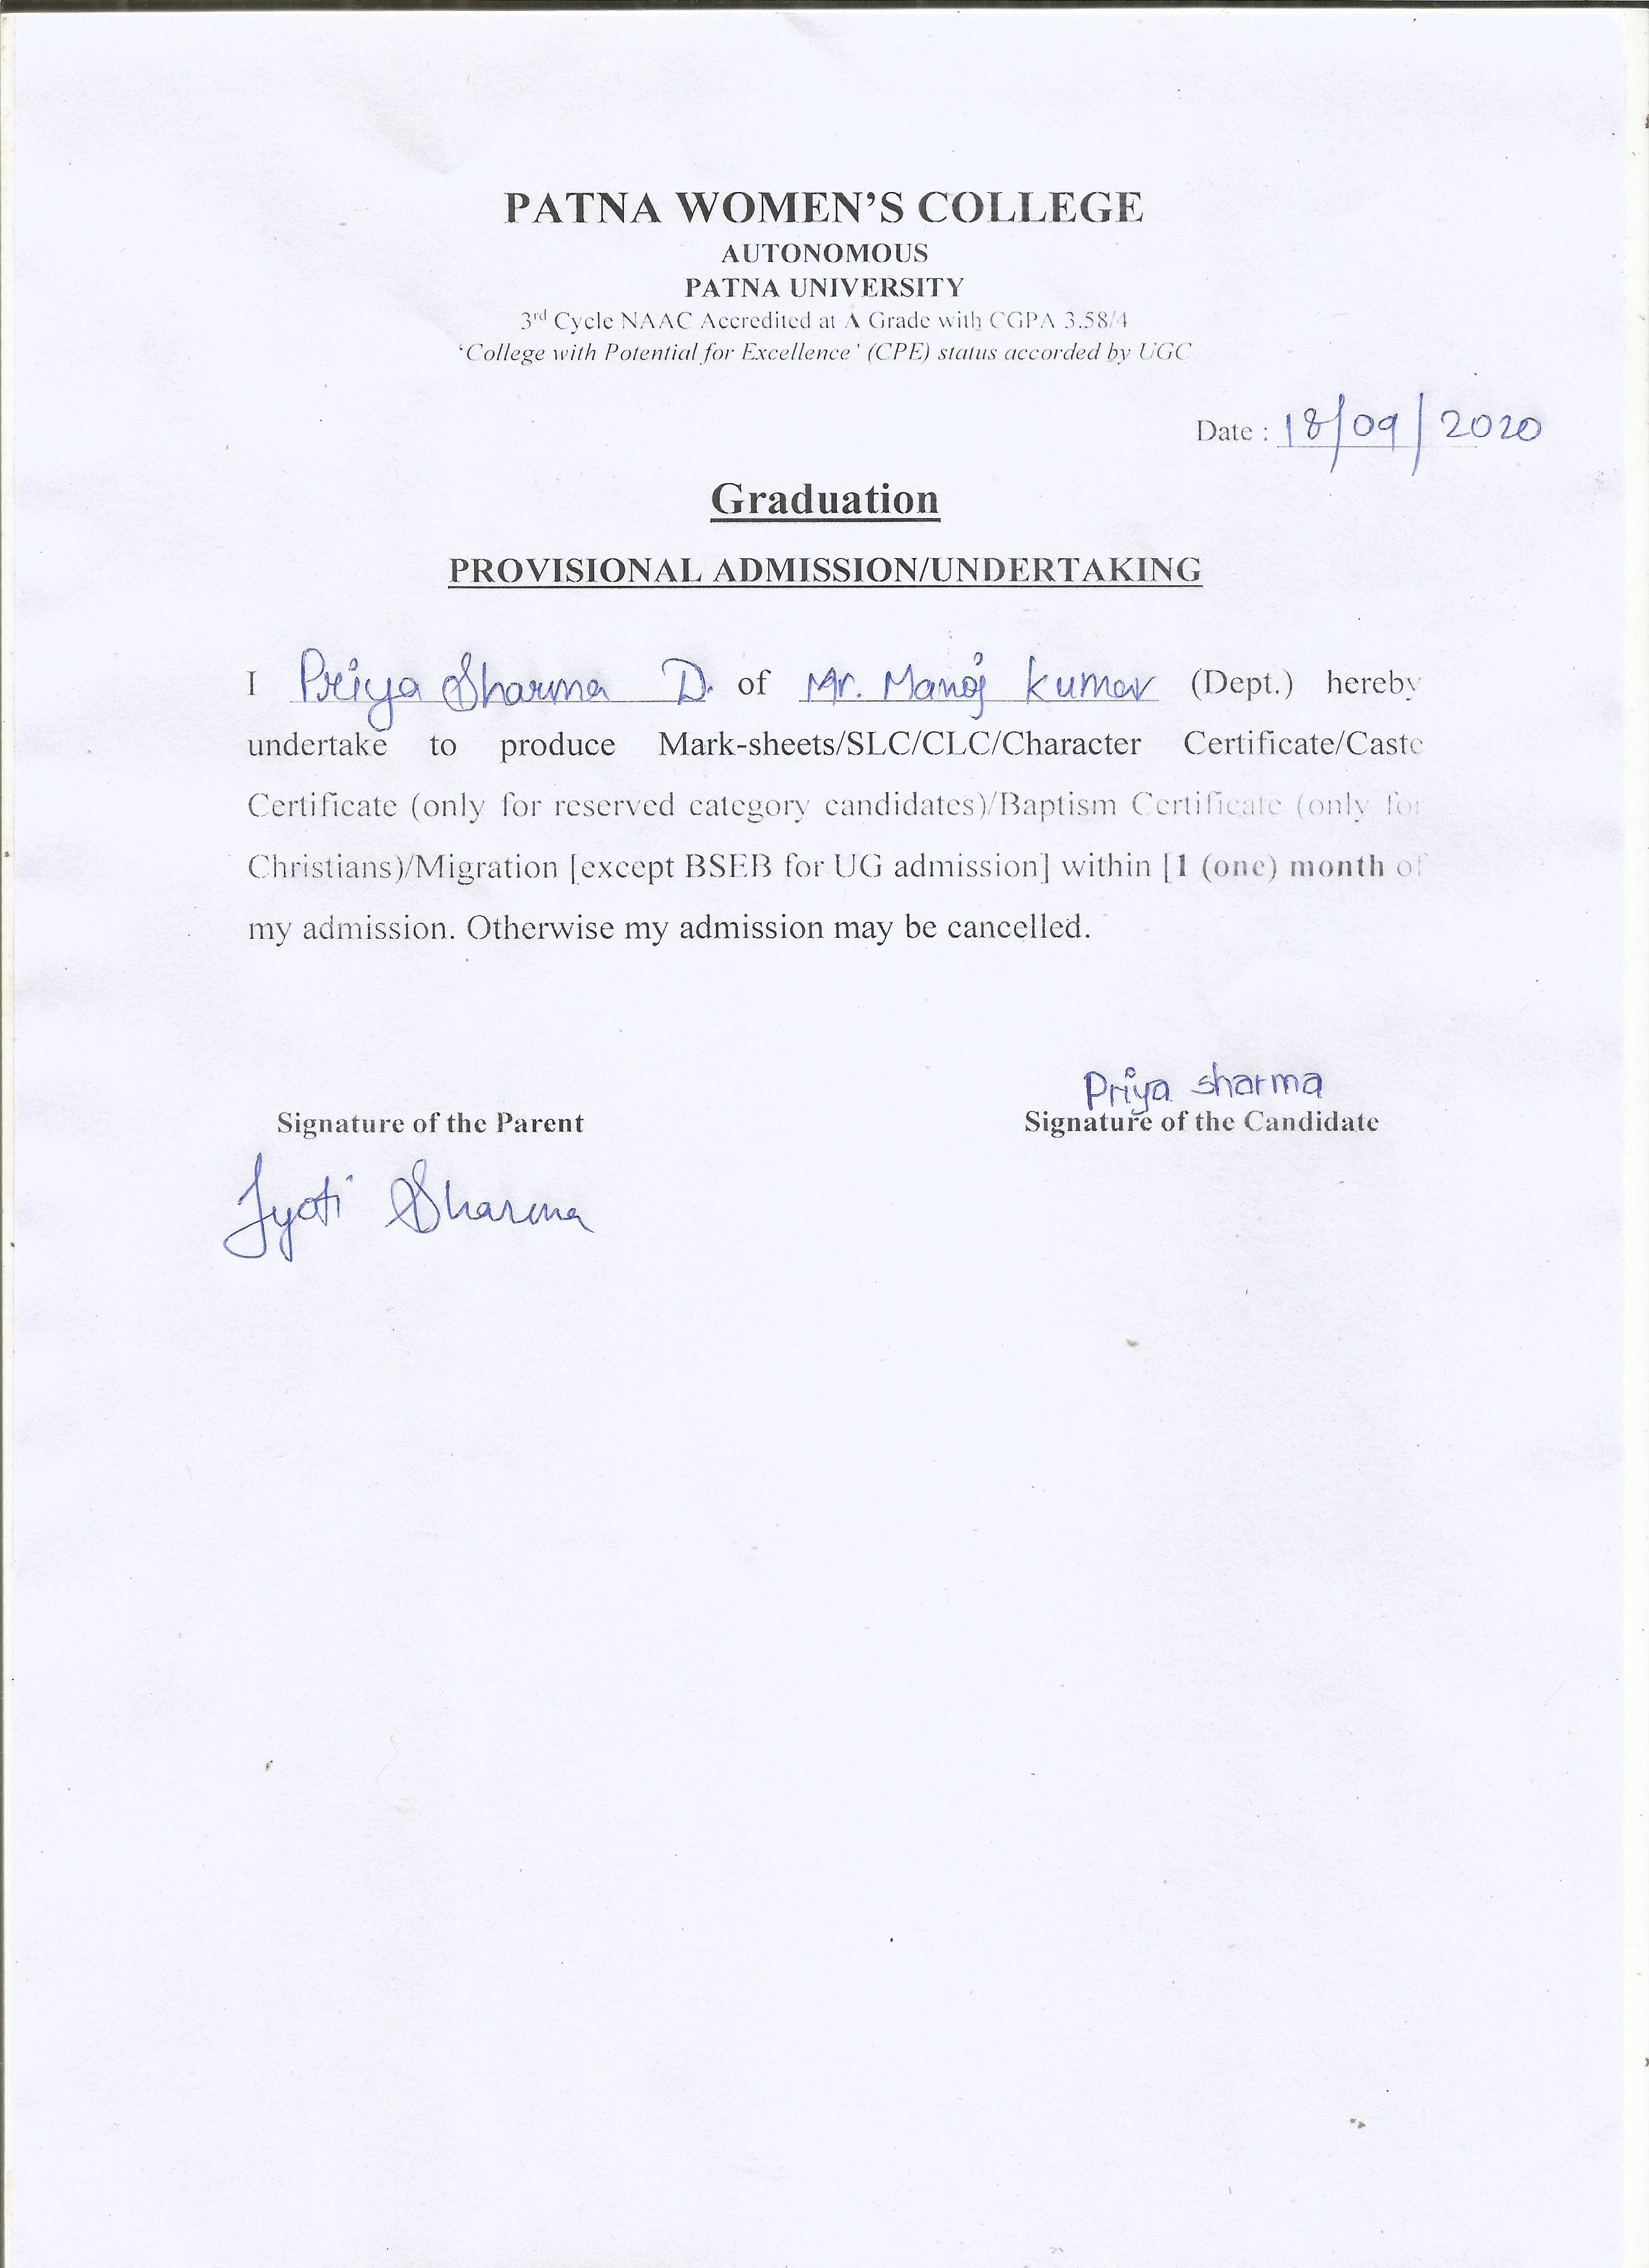 PATNA WOMEN'S COLLEGE
AUTONOMOUS
PATNA UNIVERSITY
3rd Cycle NAAC Accredited at A Grade with CGPA 3.58/4
'College with Potential for Excellence' (CPE) status accorded by UGC
Date : 18/09/2020
Graduation
PROVISIONAL ADMISSION/UNDERTAKING
I Priya Sharma D. of Mr. Manoj Kumar (Dept.) hereby
undertake to produce Mark-sheets/SLC/CLC/Character Certificate/Caste
Certificate (only for reserved category candidates)/Baptism Certificate (only for
Christians)/Migration [except BSEB for UG admission] within [1 (one) month of
my admission. Otherwise my admission may be cancelled.
Priya sharma
Signature of the Parent Signature of the Candidate
Jyoti Sharma